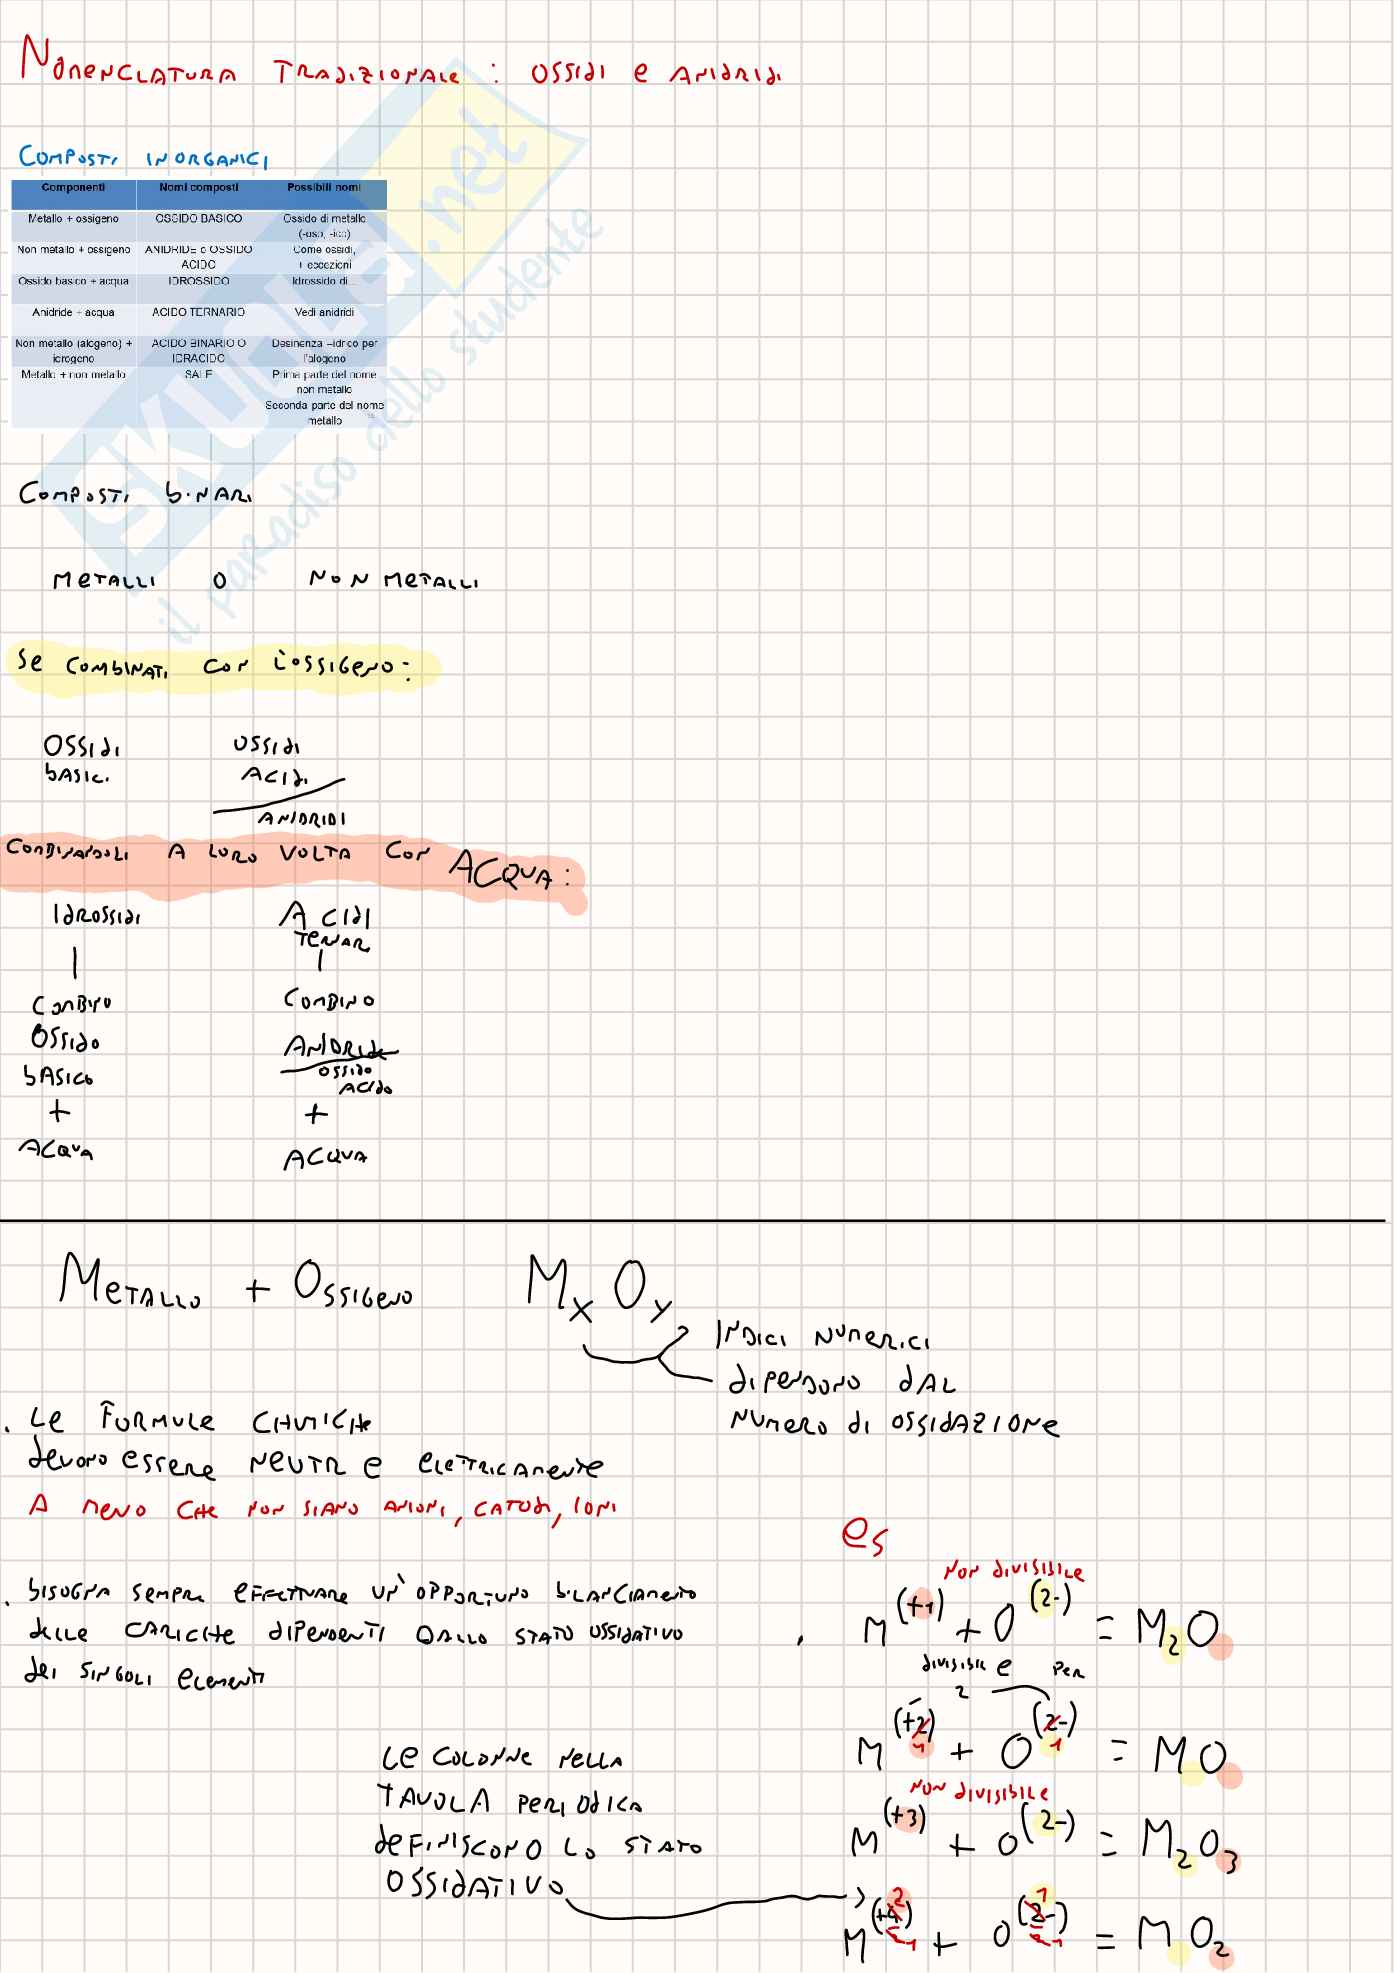 Nomenclatura tradizionale: ossidi e anidridi
Composti inorganici
Componenti Nomi composti Possibili nomi
Metallo + ossigeno OSSIDO BASICO Ossido di metallo
(-oso, -ico)
Non metallo + ossigeno ANIDRIDE o OSSIDO Come ossidi,
ACIDO + eccezioni
Ossido basico + acqua IDROSSIDO Idrossido di...
Anidride + acqua ACIDO TERNARIO Vedi anidridi
Non metallo (alogeno) + ACIDO BINARIO O Desinenza –idrico per
idrogeno IDRACIDO l'alogeno
Metallo + non metallo SALE Prima parte del nome
non metallo
Seconda parte del nome
metallo
SKUOLA.net
il paradiso dello studente
Composti binari
Metalli o non metalli
Se combinati con l'ossigeno:
Ossidi ossidi
basici acidi
anidridi
Combinandoli a loro volta con ACQUA:
Idrossidi Acidi
ternari
Combino Combino
ossido Anidride
basico ossido
acido
+ +
Acqua Acqua
Metallo + Ossigeno MxOy
Indici numerici
dipendono dal
numero di ossidazione
. Le formule chimiche
devono essere neutre elettricamente
A meno che non siano anioni, catodi, ioni
es
. bisogna sempre effettuare un'opportuno bilanciamento
delle cariche dipendenti dallo stato ossidativo
dei singoli elementi
non divisibile
. M(+1) + O(2-) = M2O
divisibile per
2
M(+2) 1 + O(2-) 1 = MO
Le colonne nella
tavola periodica
definiscono lo stato
ossidativo
non divisibile
M(+3) + O(2-) = M2O3
2 1
M(+4) + O(2-) = MO2